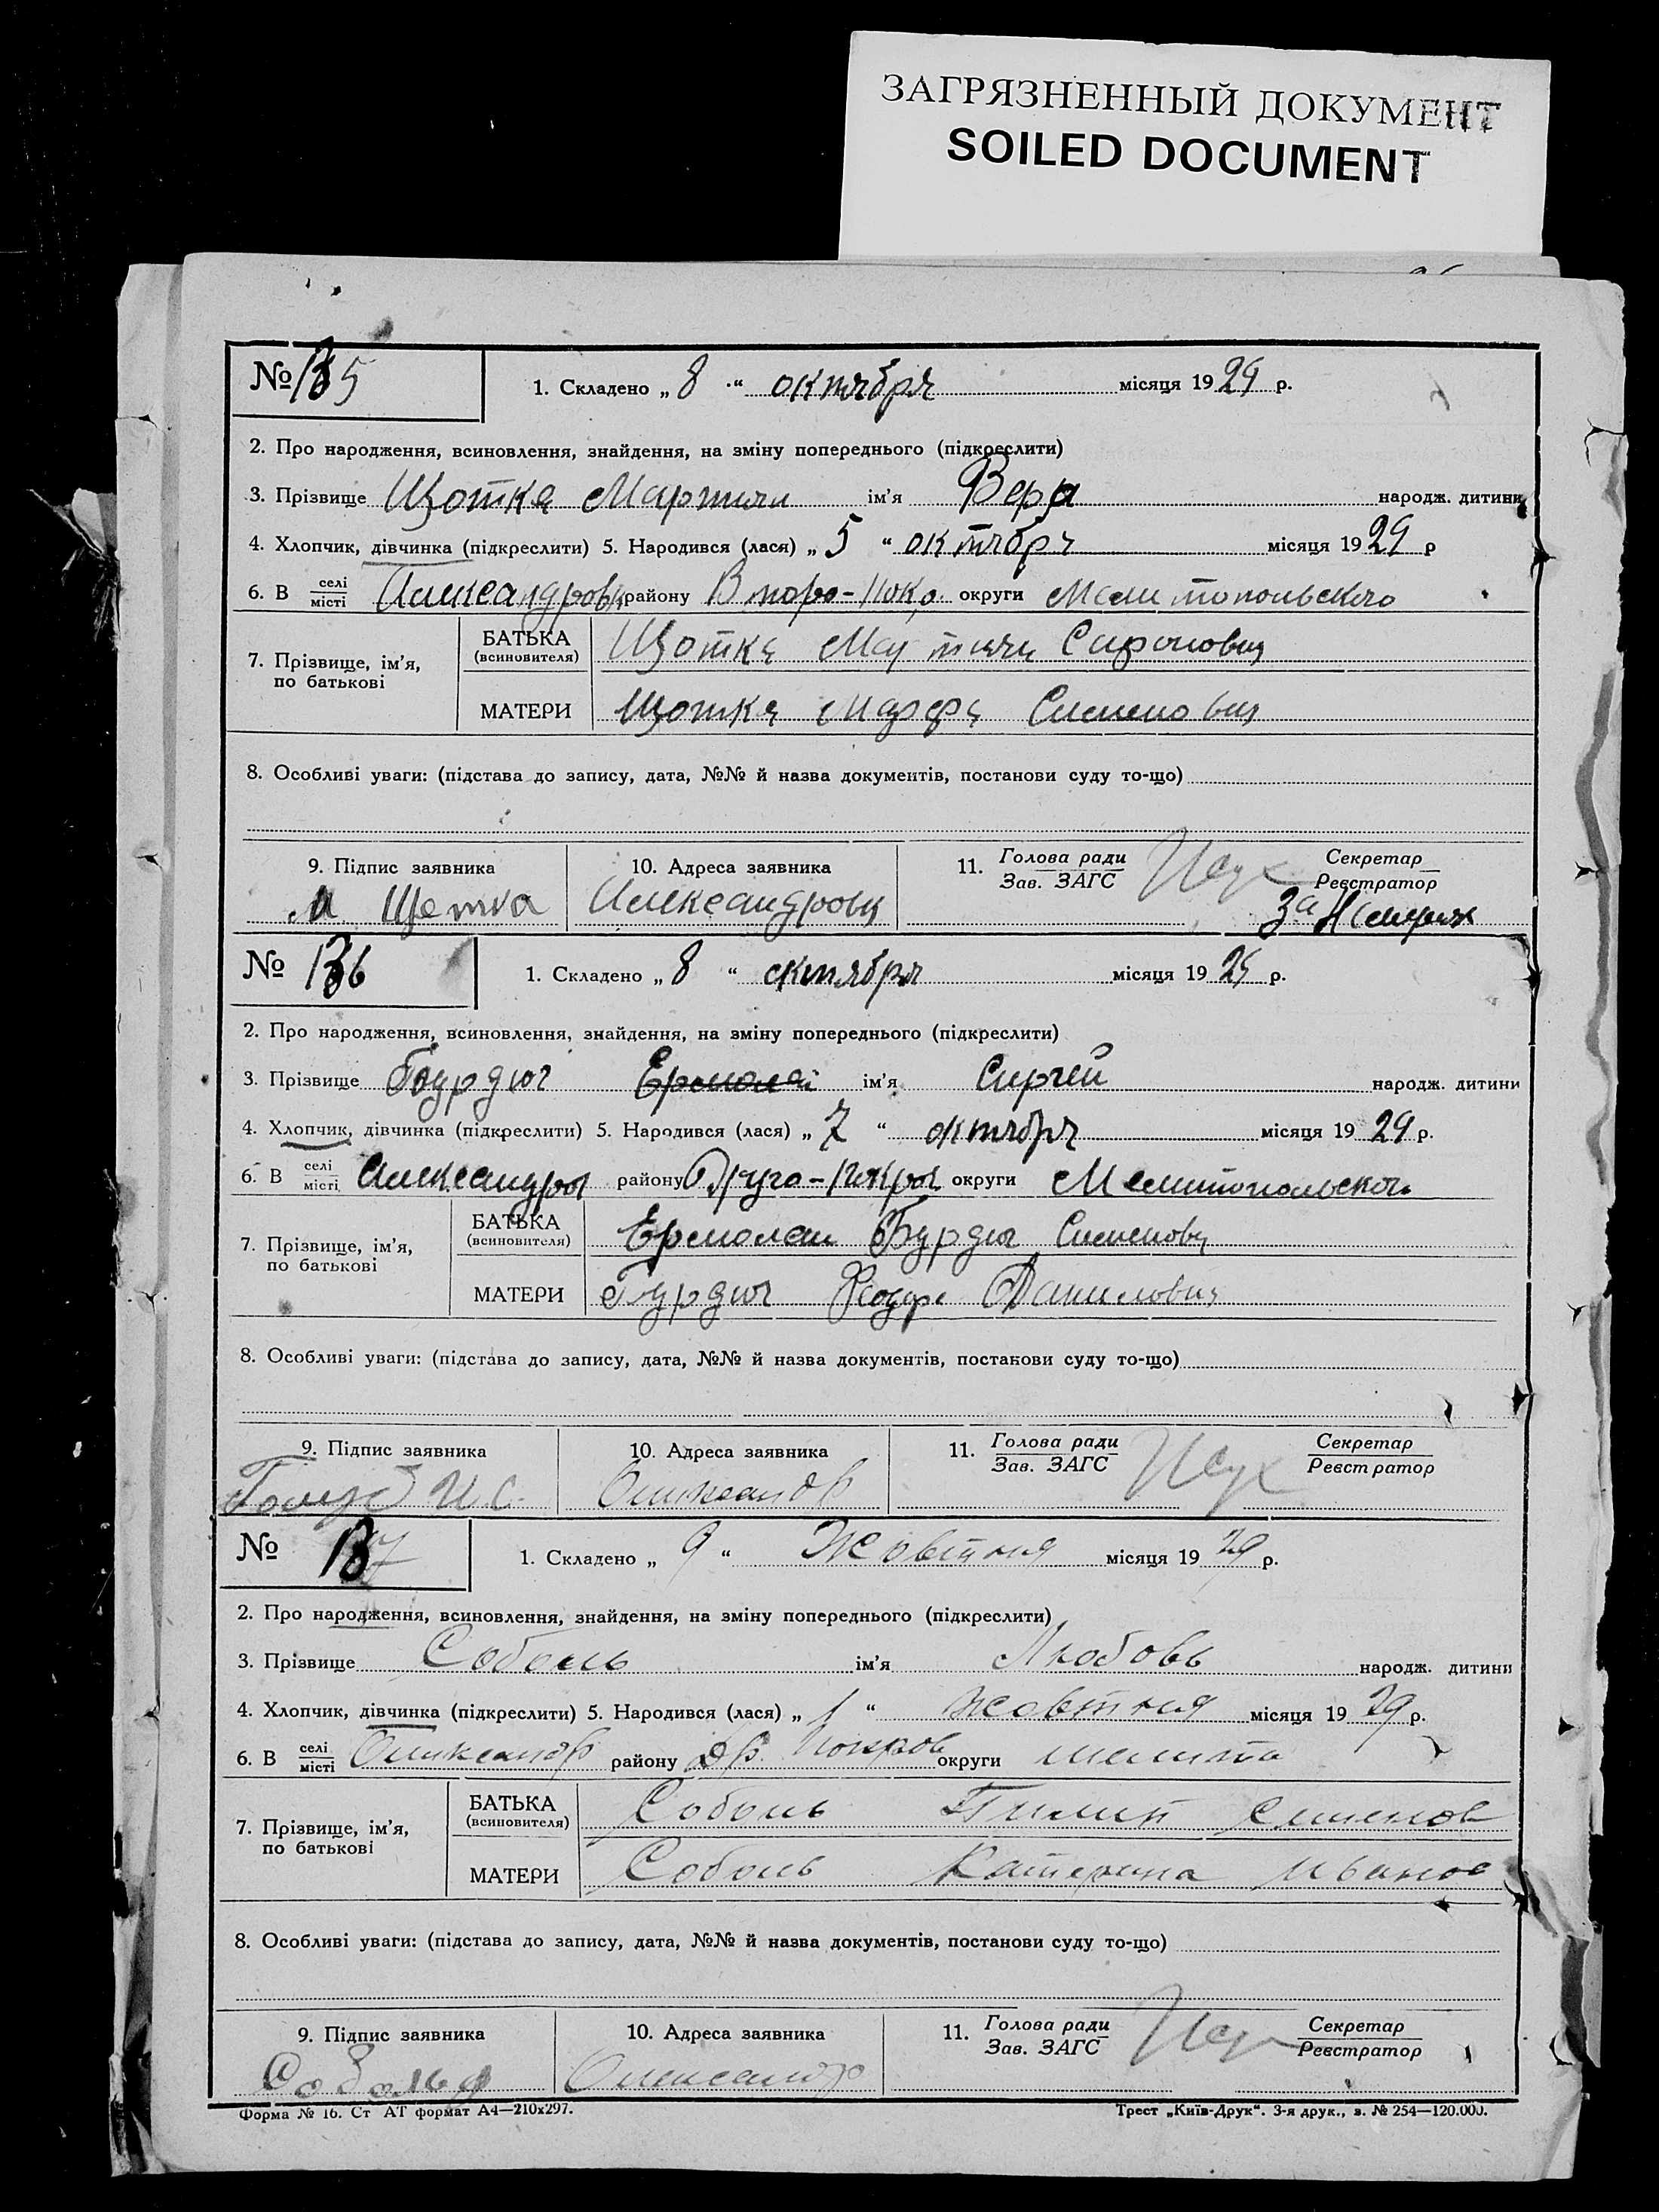 ЗАГРЯЗНЕННЫЙ ДОКУМЕНТ
SOILED DOCUMENT
№ 135
1. Складено „ 8 “ октября місяця 1929 р.
2. Про народження, всиновлення, знайдення, на зміну попереднього (підкреслити)
3. Прізвище Щотка ім'я Вера народж. дитини
4. Хлопчик, дівчинка (підкреслити) 5. Народився (лася) „ 5 “ октября місяця 1929 р
6. В селі місті Александровк району Второ-Покр. округи Мелитопольского
7. Прізвище, ім'я, по батькові
БАТЬКА (всиновителя) Щотка
МАТЕРИ Щотка Марфа Сименовна
8. Особливі уваги: (підстава до запису, дата, №№ й назва документів, постанови суду то-що)
9. Підпис заявника
10. Адреса заявника
11. Голова ради Зав. ЗАГС
Секретар Реєстратор
М Щетка
Александровк
За
№ 136
1. Складено „ 8 “ октября місяця 1929 р.
2. Про народження, всиновлення, знайдення, на зміну попереднього (підкреслити)
3. Прізвище Бурдюг Ермолай ім'я Сергей народж. дитини
4. Хлопчик, дівчинка (підкреслити) 5. Народився (лася) „ 7 “ октября місяця 1929 р.
6. В селі місті Александров району Друго-Покров округи Мелитопольского
7. Прізвище, ім'я, по батькові
БАТЬКА (всиновителя) Ермолай Бурдюг Сименович
МАТЕРИ Бурдюг Даниловна
8. Особливі уваги: (підстава до запису, дата, №№ й назва документів, постанови суду то-що)
9. Підпис заявника
10. Адреса заявника
11. Голова ради Зав. ЗАГС
Секретар Реєстратор
Голуб И С.
Олександр
№ 137
1. Складено „ 9 “ Жовтня місяця 1929 р.
2. Про народження, всиновлення, знайдення, на зміну попереднього (підкреслити)
3. Прізвище Соболь ім'я Любовь народж. дитини
4. Хлопчик, дівчинка (підкреслити) 5. Народився (лася) „ 1 “ жовтня місяця 1929 р.
6. В селі місті Олександр району Др. Покров округи мелито
7. Прізвище, ім'я, по батькові
БАТЬКА (всиновителя) Соболь Пилип Сименов
МАТЕРИ Соболь Катерина Иванов
8. Особливі уваги: (підстава до запису, дата, №№ й назва документів, постанови суду то-що)
9. Підпис заявника
10. Адреса заявника
11. Голова ради Зав. ЗАГС
Секретар Реєстратор
Соболь
Олександр
Форма № 16. Ст АТ формат А4—210х297.
Трест „Київ-Друк“. 3-я друк., з. № 254—120.000.